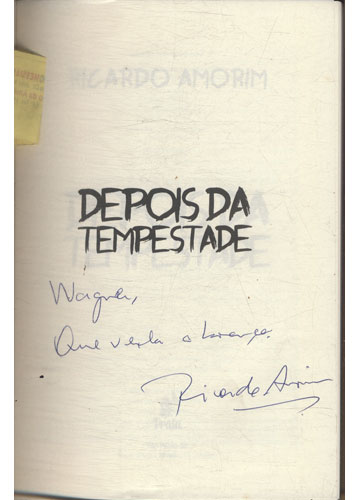 RICARDO AMORIM
DEPOIS DA
TEMPESTADE
Wagner,
Que venha a bonança.
Ricardo Amorim